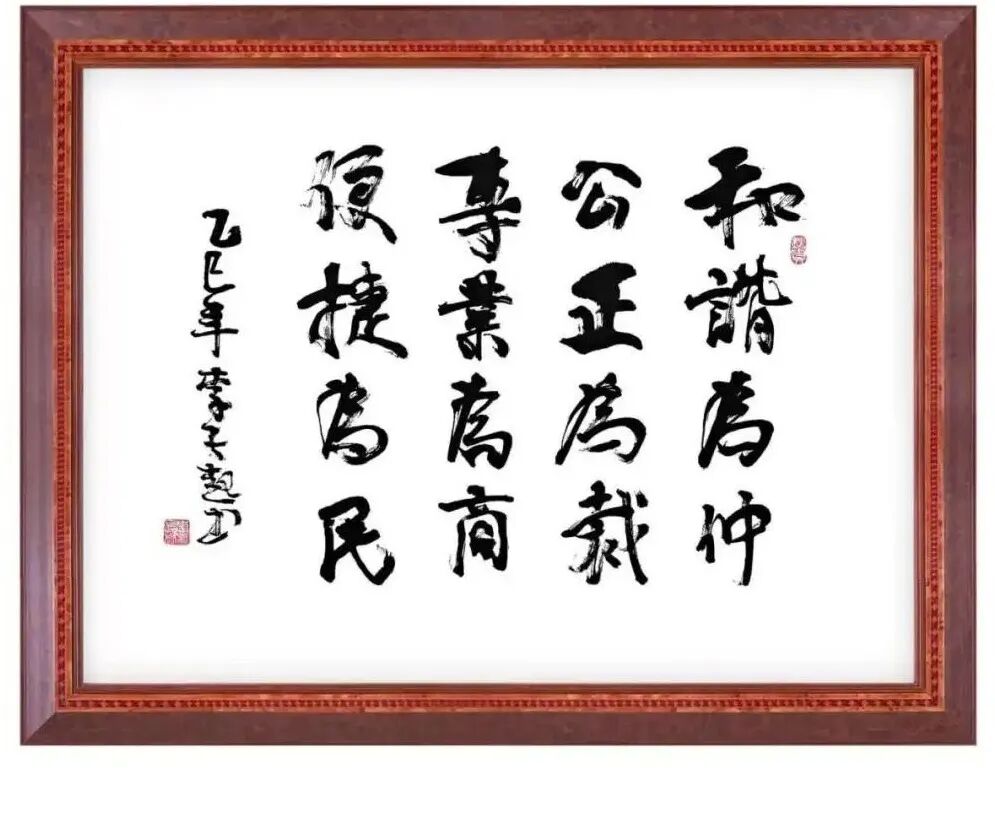 和諧為仲
公正為裁
事業為商
便捷為民
乙巳年 李子